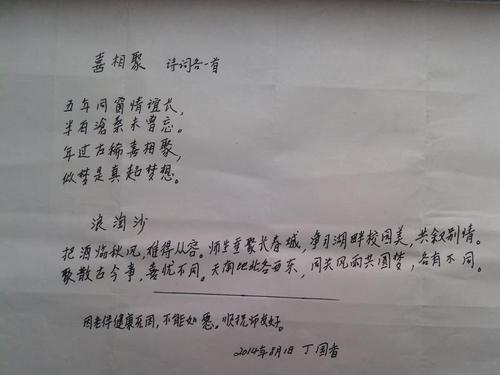 喜相聚 诗词各一首
五年同窗情谊长,
半百沧桑未曾忘。
年过古稀喜相聚,
似梦是真起梦想。
浪淘沙
把酒临秋风,难得从容。师生重聚长春城,净月湖畔校园美,共叙别情。
聚散古今事,喜忧不同。天南地北各西东,同关风雨共圆梦,各有不同。
因老伴健康原因,不能如愿。顺祝师友好。
2014年8月1日 丁国香